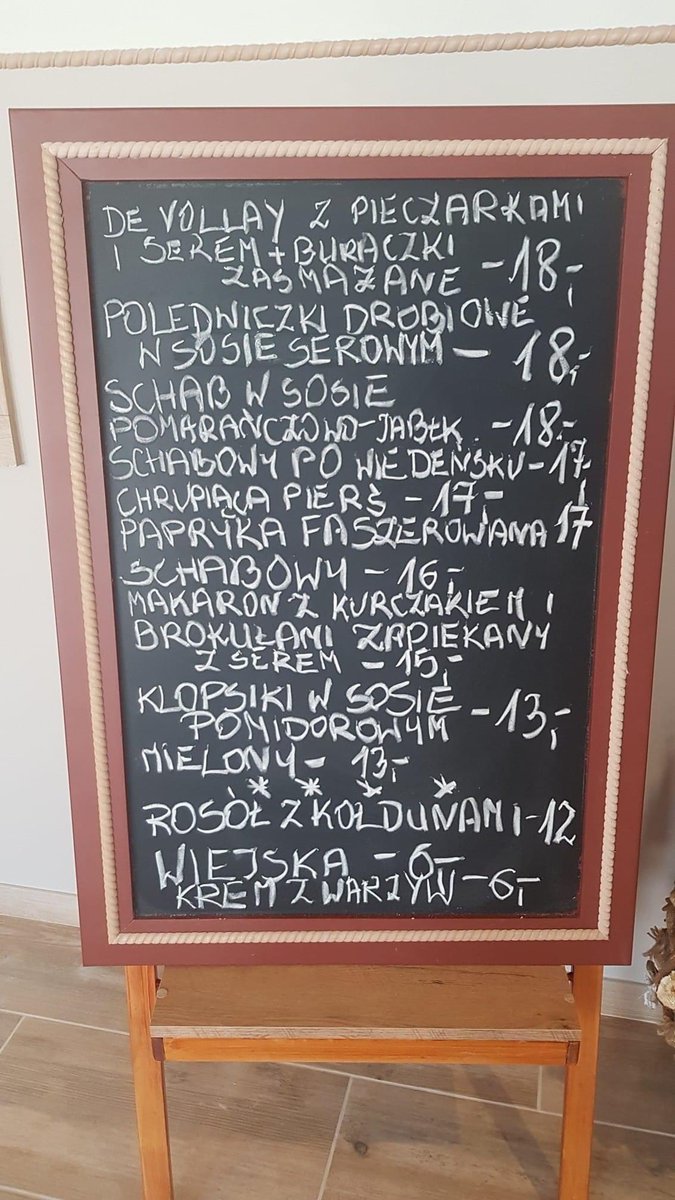 DE VOLLAY Z PIECZARKAMI
I SEREM + BURACZKI
ZASMAŻANE - 18,-
POLĘDWICZKI DROBIOWE
W SOSIE SEROWYM - 18,-
SCHAB W SOSIE
POMARAŃCZOWO-JABŁK. - 18,-
SCHABOWY PO WIEDEŃSKU - 17,-
CHRUPIĄCA PIERŚ - 17,-
PAPRYKA FASZEROWANA 17
SCHABOWY - 16,-
MAKARON Z KURCZAKIEM I
BROKUŁAMI ZAPIEKANY
Z SEREM - 15,-
KLOPSIKI W SOSIE
POMIDOROWYM - 13,-
MIELONY - 13,-
* * * *
ROSÓŁ Z KOŁDUNAMI - 12
WIEJSKA - 6,-
KREM Z WARZYW - 6,-